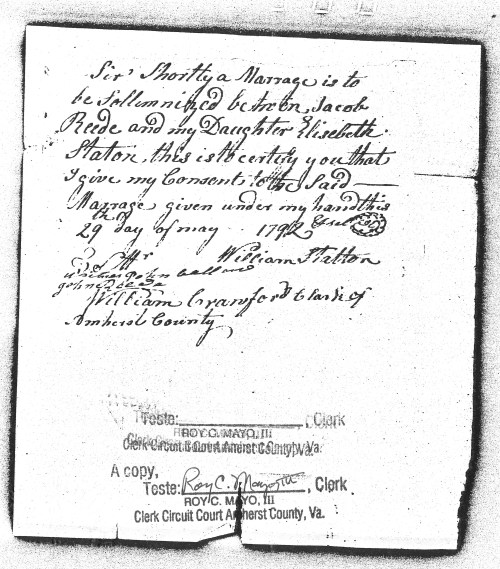 Sir' Shortly a Marrage is to
be Sollemnized betwen Jacob
Reede and my Daughter Elisebeth
Staton, this is to certify you that
I give my Consent to the Said
Marrage given under my hand this
29 day of may 1792
William Statton
John Reede
William Crawford Clark of
Amherst County
Teste: , Clerk
ROY C. MAYO, III
Clerk Circuit Court Amherst County, Va.
A copy,
Teste: Roy C. Mayo III , Clerk
ROY C. MAYO, III
Clerk Circuit Court Amherst County, Va.